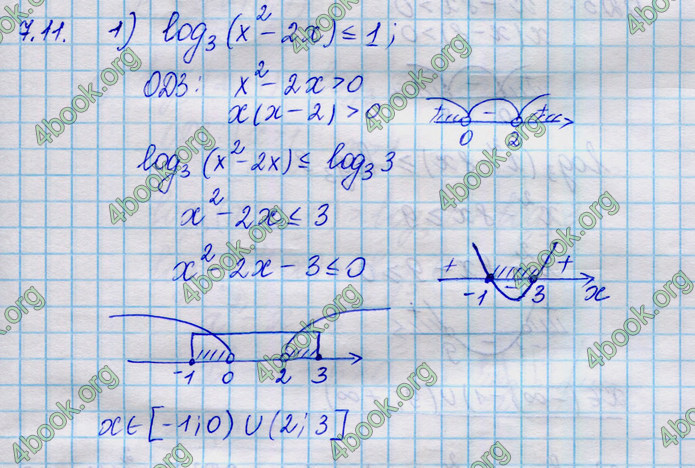 7.11. 1) log₃(x² - 2x) ≤ 1;
ОДЗ: x² - 2x > 0
x(x - 2) > 0
+ - +
0 2
log₃(x² - 2x) ≤ log₃ 3
x² - 2x ≤ 3
x² - 2x - 3 ≤ 0
+ - +
-1 3 x
-1 0 2 3
x ∈ [-1; 0) ∪ (2; 3]
4book.org